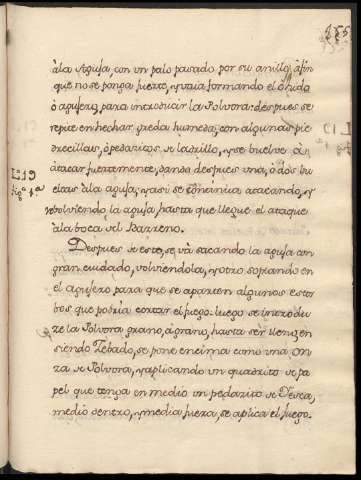 àla Aguja, con un palo pasado por su anillo, afin
que no se ponga fuerte, y vaia formando el ohido
ò agujero, para introducir la Polvora: despues se
repite en hechar greda humeda, con algunas pie
drecillas, ò pedazitos de ladrillo, y se buelve à
atacar fuertemente, dando despues una, ò dos bu
eltas àla aguja, y asi se continùa atacando, y
rebolviendo la aguja hasta que llegue el ataque
àla boca del Barreno.
Despues de esto, se và sacando la aguja con
gran cuidado, volviendola, y otro soplando en
el agujero para que se aparten algunos estor
bos que podria cortar el fuego: luego se introdu
ze la Polvora grano, à grano, hasta ser lleno; en
siendo Zebado, se pone encima como una on
za de Polvora, y aplicando un quadrito de pa
pel que tenga en medio un pedazito de Yesca,
medio dentro, y media fuera, se aplica el fuego.